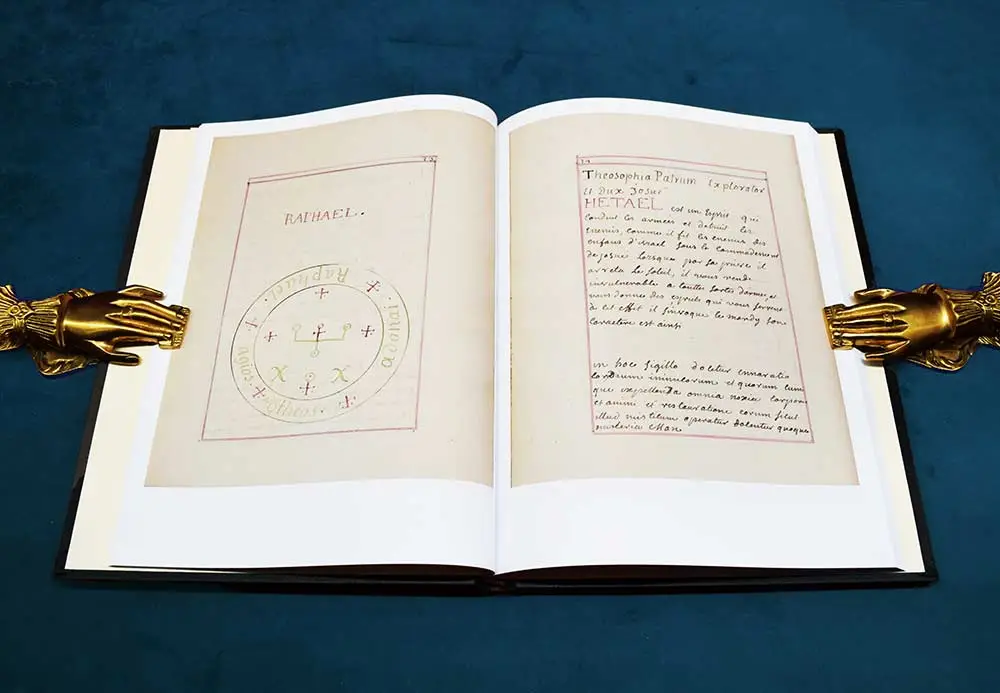 RAPHAEL.
Raphael.
Adonai
Otheos.
agios
Theosophia Patrum Explorator
et Dux Josué
HETAEL est un Esprit qui
conduit les armées et detruit les
enemis, comme il fit les enemis des
enfans d'israel sous le commandement
de josue lorsque par sa priere il
arreta le soleil, il vous rends
invulnerable a toutte sortes d'arme, et
vous donne des esprits qui vous servent
à cet effet il s'invoque le mardy son
caractere est ainsi
in hoc sigillo docetur enarratio
que expellenda omnia noxia corporis
et animi et restauratione eorum simul
illud operatur docentur quoque